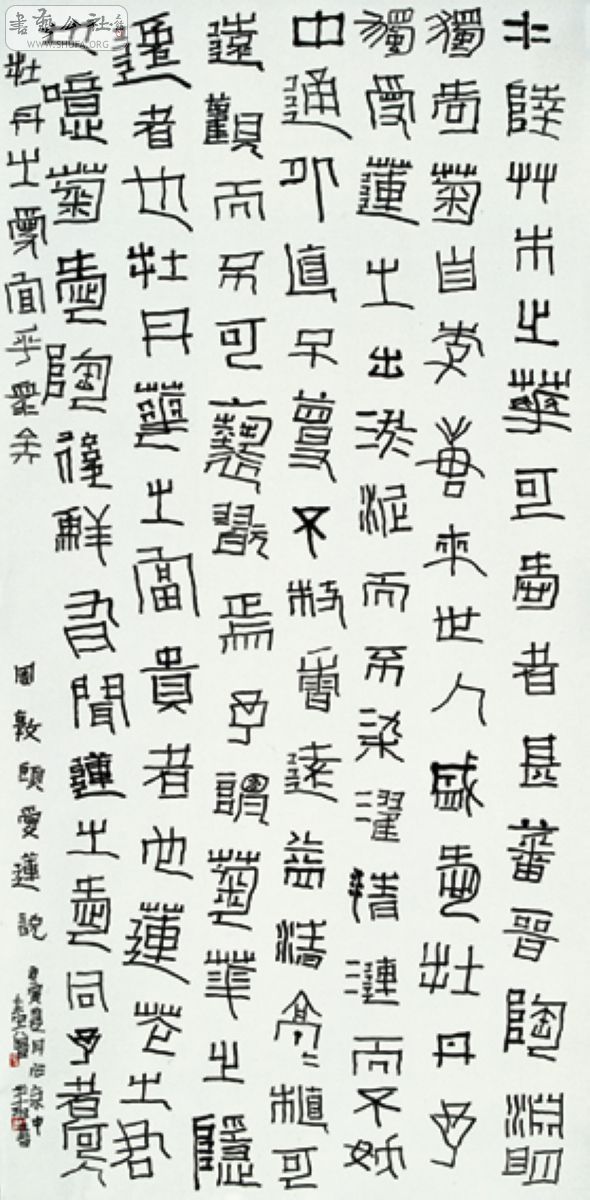 書藝公社
WWW.SHUFA.ORG
水陸艸木之華可愛者甚蕃晉陶淵明
獨愛菊自李唐來世人盛愛牡丹予
獨愛蓮之出淤泥而不染濯清漣而不妖
中通外直不蔓不枝香遠益清亭〻植可
遠觀而不可褻翫焉予謂菊華之隱
逸者也牡丹華之富貴者也蓮花之君
子噫菊愛陶後鮮有聞蓮之愛同予者何人
牡丹之愛宜乎眾矣
周敦頤愛蓮說